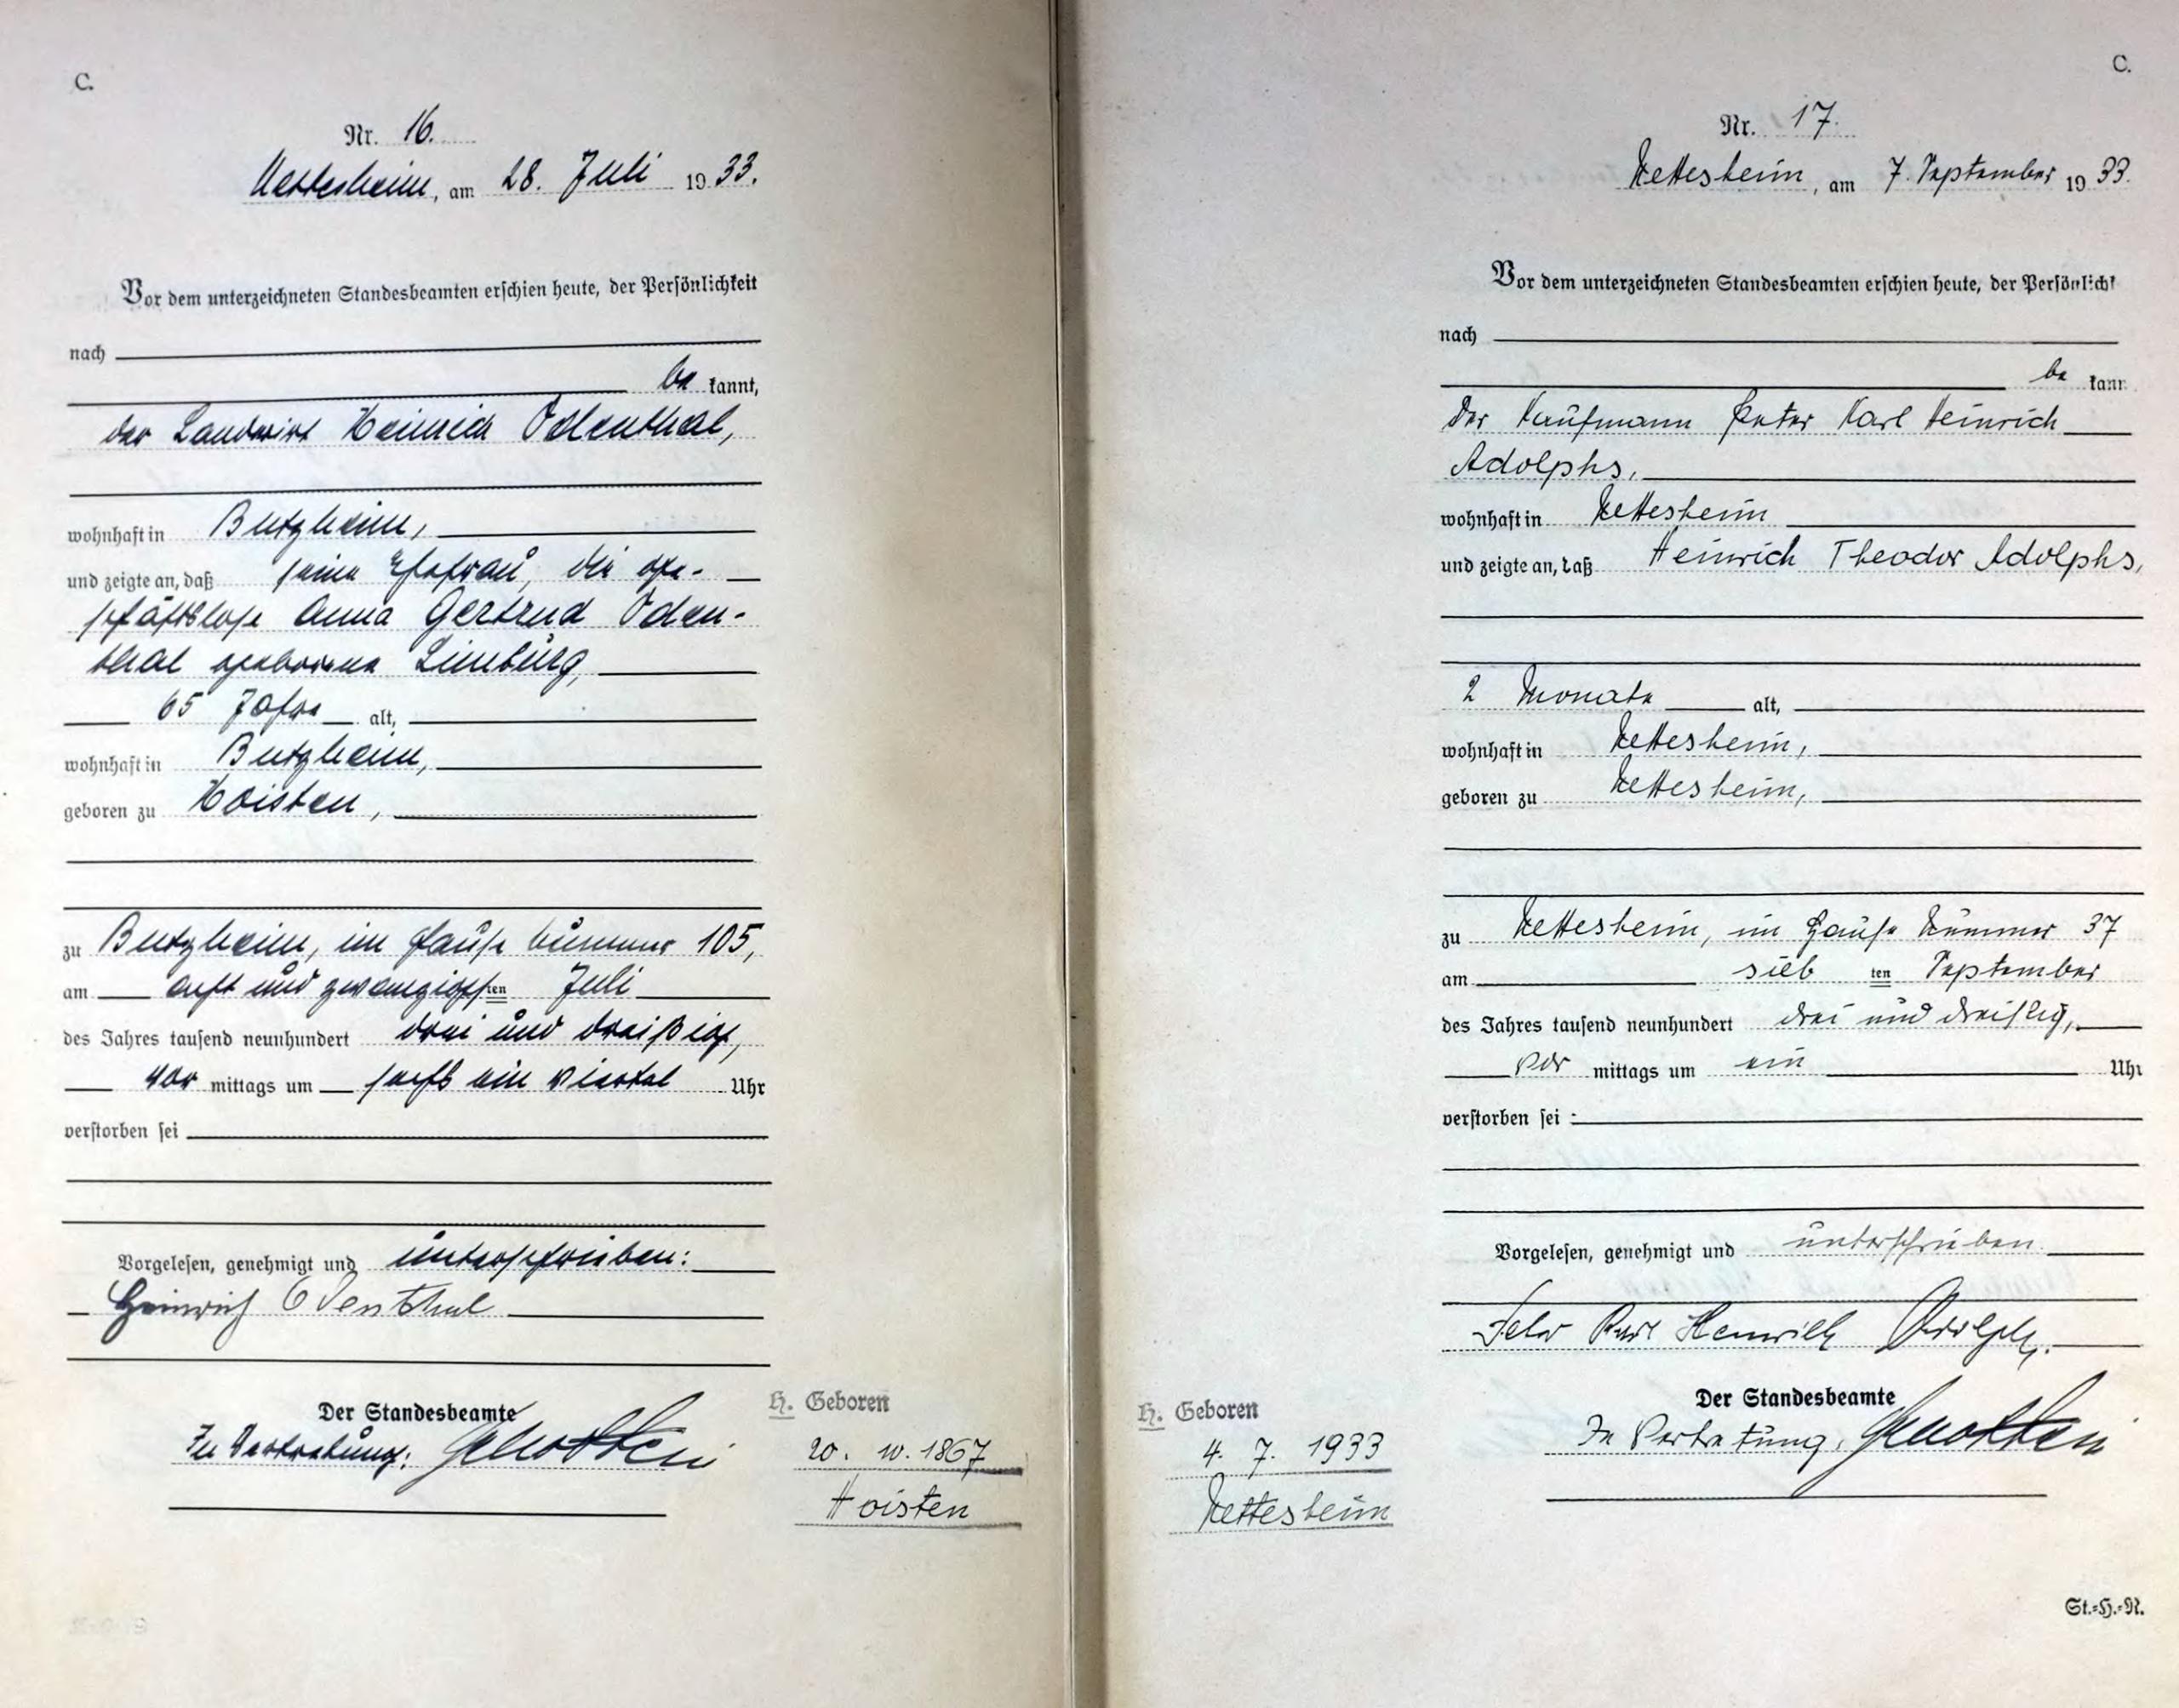 C.
Nr. 16.
Nettesheim, am 28. Juli 1933.
Vor dem unterzeichneten Standesbeamten erschien heute, der Persönlichkeit
nach
be kannt,
der Landwirt Heinrich Odenthal,
wohnhaft in Butzheim,
und zeigte an, daß seine Ehefrau, die ge-
schäftslose Anna Gertrud Oden-
thal geborene Limburg,
65 Jahre alt,
wohnhaft in Butzheim,
geboren zu Hoisten,
zu Butzheim, im Hause Nummer 105,
am acht und zwanzigsten Juli
des Jahres tausend neunhundert drei und dreißig,
vor mittags um sechs ein viertel Uhr
verstorben sei
Vorgelesen, genehmigt und unterschrieben:
Heinrich Odenthal
Der Standesbeamte
In Vertretung:
H. Geboren
20. 10. 1867
Hoisten
C.
Nr. 17.
Nettesheim, am 7. September 1933.
Vor dem unterzeichneten Standesbeamten erschien heute, der Persönlichk
nach
be kann
der Kaufmann Peter Karl Heinrich
Adolphs,
wohnhaft in Nettesheim
und zeigte an, daß Heinrich Theodor Adolphs,
2 Monate alt,
wohnhaft in Nettesheim,
geboren zu Nettesheim,
zu Nettesheim, im Hause Nummer 37
am sieb ten September
des Jahres tausend neunhundert drei und dreißig,
vor mittags um ein Uhr
verstorben sei :
Vorgelesen, genehmigt und unterschrieben
Peter Karl Heinrich Adolphs.
Der Standesbeamte
In Vertretung,
H. Geboren
4. 7. 1933
Nettesheim
St.=H.=R.